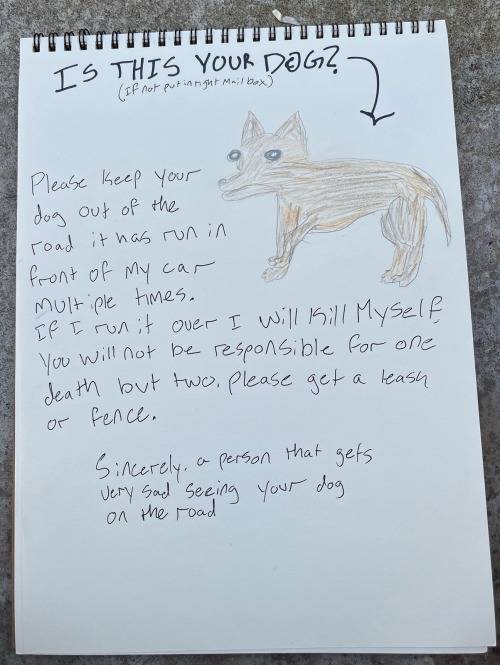 IS THIS YOUR DOG?
(If not put in right Mailbox)
Please keep your
dog out of the
road it has run in
front of my car
multiple times.
If I run it over I will kill Myself.
You will not be responsible for one
death but two. Please get a leash
or fence.
Sincerely, a person that gets
very sad seeing your dog
on the road